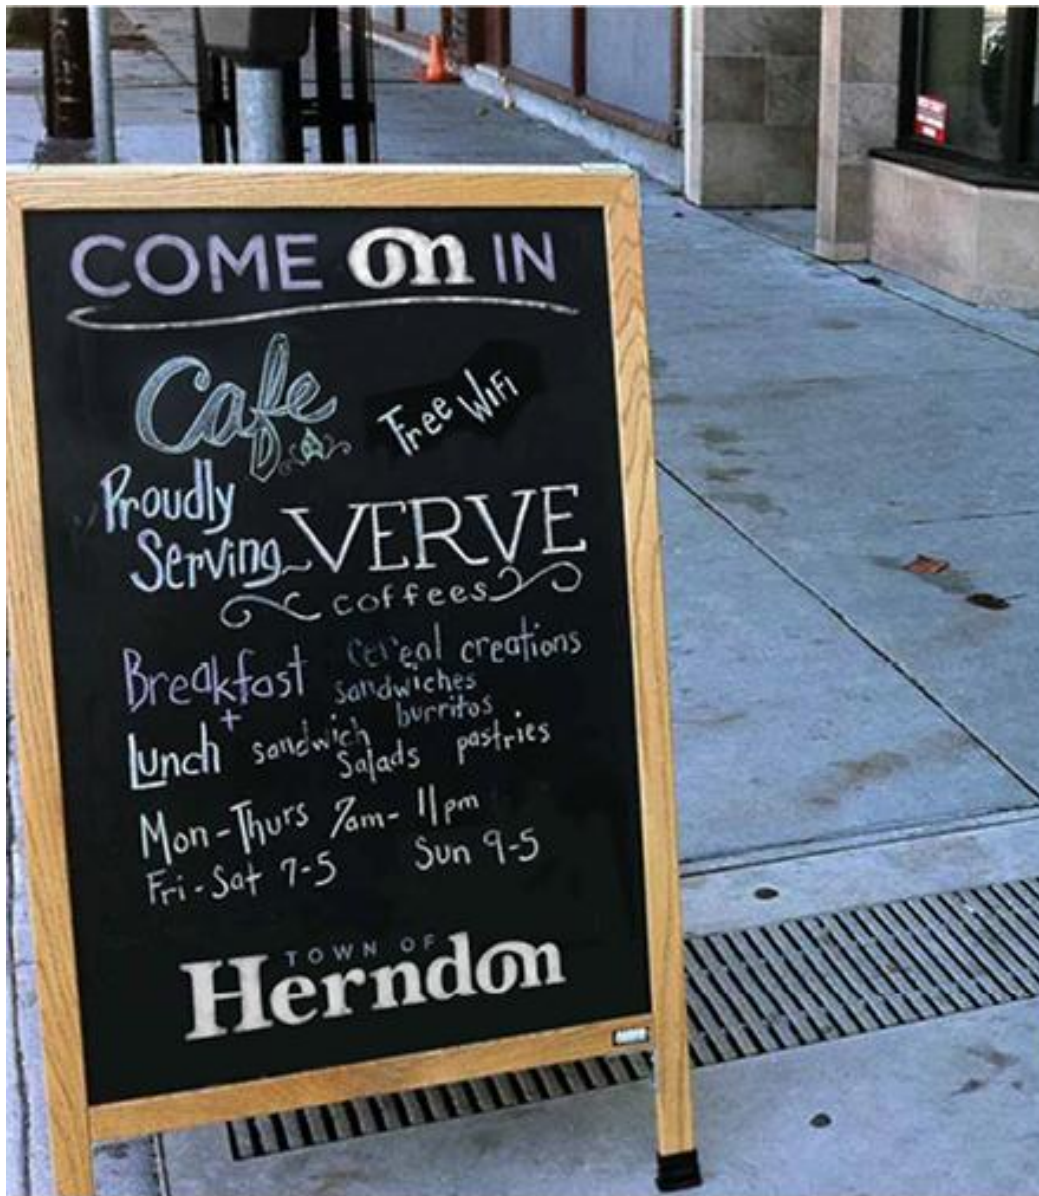 COME on IN
Cafe
Free WiFi
Proudly
Serving
VERVE
coffees
Breakfast cereal creations
sandwiches
burritos
+
Lunch sandwich
Salads pastries
Mon-Thurs 7am-11pm
Fri-Sat 7-5 Sun 9-5
TOWN OF
Herndon